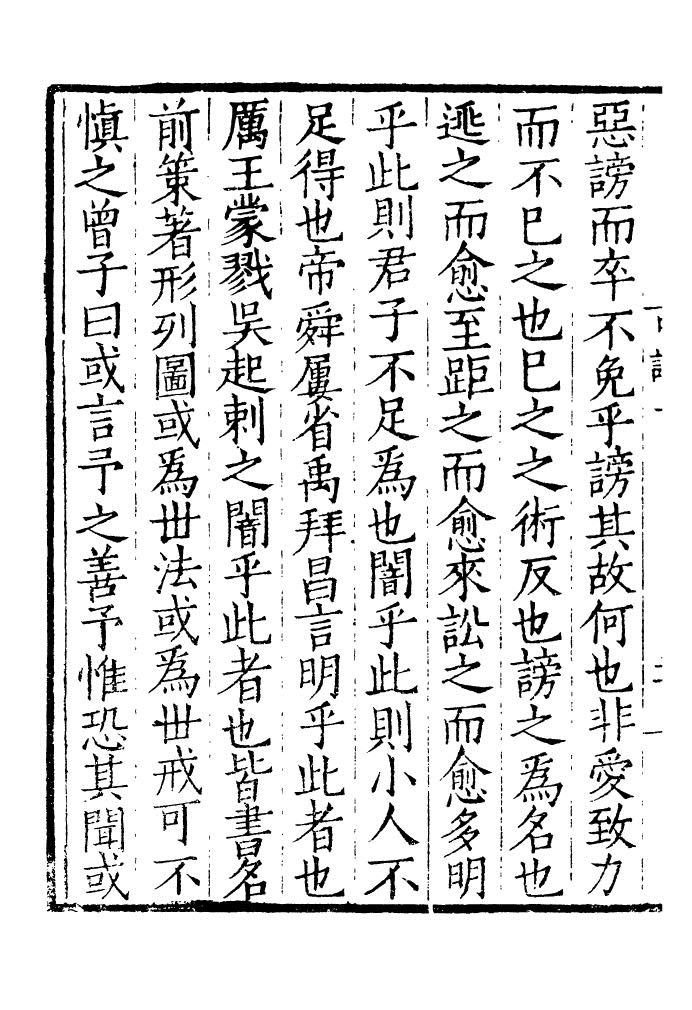 惡謗而卒不免乎謗其故何也非愛致力
而不巳之也巳之之術反也謗之爲名也
逃之而愈至距之而愈來訟之而愈多明
乎此則君子不足爲也闇乎此則小人不
足得也帝舜屢省禹拜昌言明乎此者也
厲王蒙戮吳起刺之闇乎此者也皆書名
前策著形列圖或爲世法或爲世戒可不
慎之曾子曰或言予之善予惟恐其聞或